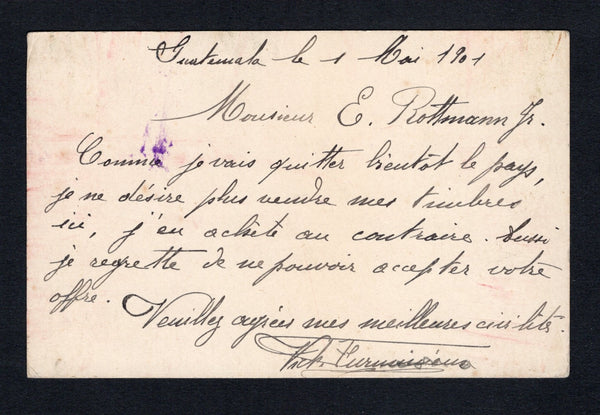 Guatemala le 1 Mai 1901
Monsieur E. Rottmann Jr.
Comme je vais quitter bientot le pays,
je ne désire plus vendre mes timbres
ici, j'en achète au contraire. Aussi
je regrette de ne pouvoir accepter votre
offre.
Veuillez agréer mes meilleures civilités.
Vict.